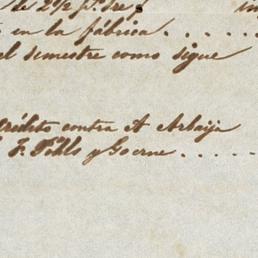 de 2 1/2 p% de
en la fábrica . . . . .
el semestre como sigue
Crédito contra A Arbaija
F. Pohls y Goerne . . . . .